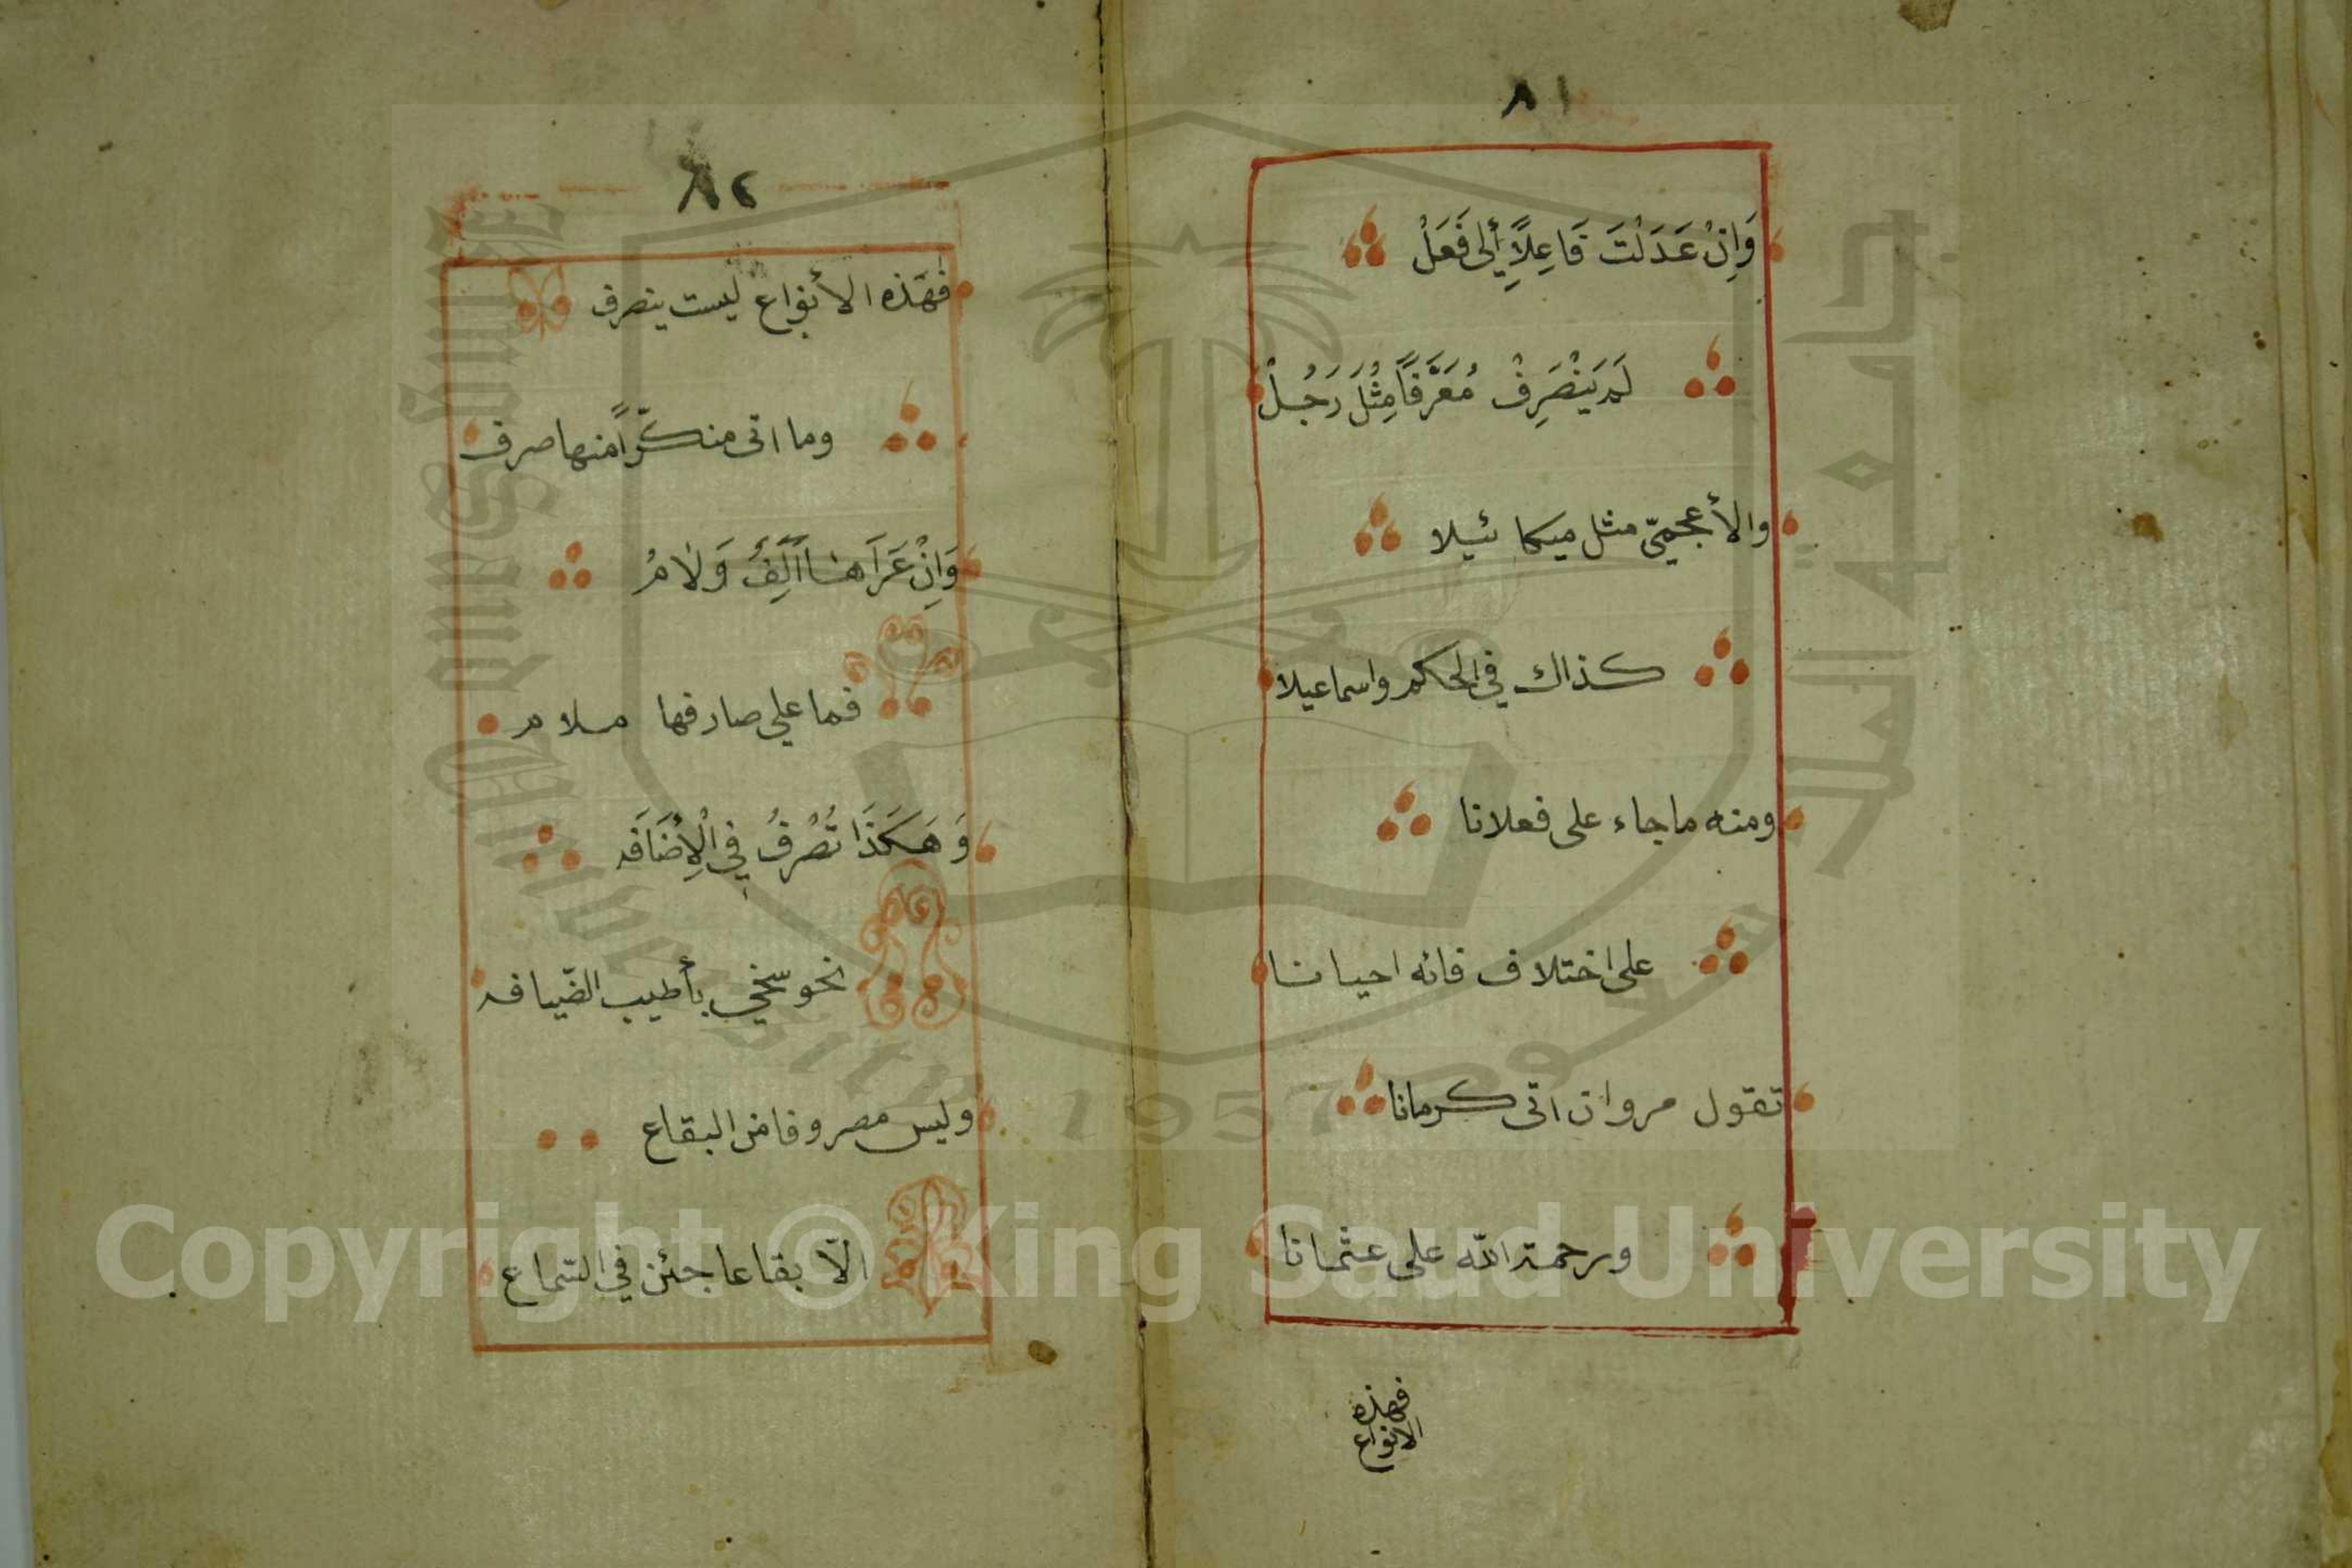 ٨١
وَاِنْ عَدَلْتَ فَاعِلًا إِلى فَعَلْ
لَمْ يَنْصَرِفْ مُعَرَّفًا مِثْلَ رَجُلْ
والأعجميّ مثل ميكائيلا
كذاك في الحكم واسماعيلا
ومنه ماجاء على فعلانا
على اختلاف فائه احيانا
تقول مروان اتى كرمانا
ورحمة الله على عثمانا
فهذه
الانواع
٨٢
فهذه الأنواع ليست ينصرف
وما اتى منكّراً منها صرف
وَاِنْ عَرَاهَا اَلِفٌ وَلَامُ
فما على صارفها ملام
وَهَكَذَا تُصْرَفُ فِي الْاِضَافَه
نحو سخي بأطيب الضّيافه
وليس مصروفا من البقاع
الّا بقاعا جئن في السّماع
Copyright © King Saud University
جامعة الملك سعود
King Saud University
1957